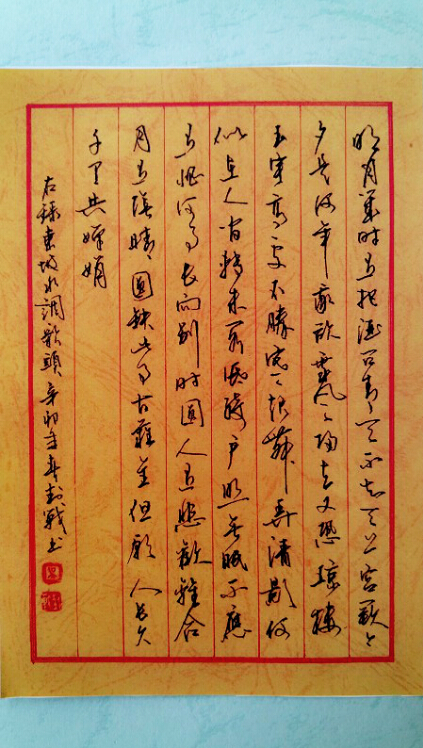 明月幾时有把酒问青天不知天上宫闕今
夕是何年我欲乘風归去又恐瓊樓
玉宇高处不勝寒起舞弄清影何
似在人间转朱阁低绮户照無眠不應
有恨何事长向别时圆人有悲歡離合
月有陰晴圓缺此事古難全但願人长久
千里共嬋娟
右錄東坡水調歌頭辛卯年書